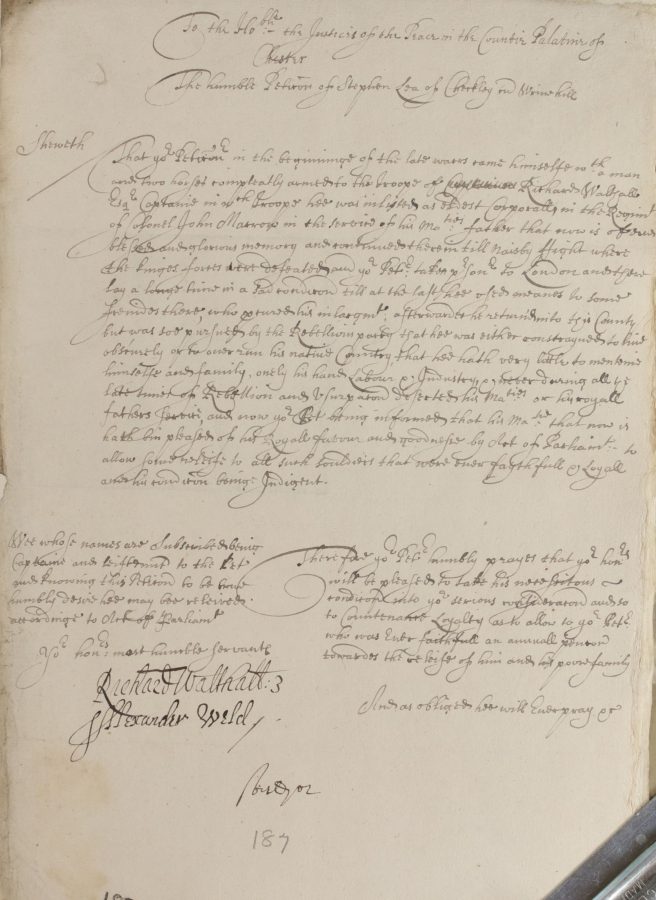 To the Ho:ble the Justices of the Peace in the Countie Palatine of
Chester
The humble Peticon of Stephen Lea of Checkley cum Wrinehill
Sheweth
That yor Peticonr in the beginninge of the late warrs came himselfe wth a man
and two horses compleatly armed to the troope of Richard Walthall
Esqr Captaine in wch troope hee was inlisted as eldest Corporall in the Regimt
of Colonel John Marrow in the service of his Maties father that now is of ever
blessed and glorious memory and continued therein till Naisby ffight where
the kinges forces were defeated and yor Petr taken prsonr to London and there
lay a longe time in a sad condicon till at the last hee used meanes to some
freindes there, who prcured his inlargmt, afterwards he returned into this County
but was soe pursued by the Rebellious party that hee was either constrayned to live
obscurely or to over run his native Country that hee hath very little to menteine
himselfe and family, onely his hand Labour & Industry, & never during all ye
late times of Rebellion and Usurpacon deserted his Maties or his royall
fathers service, and now yor Pet being informed that his Matie that now is
hath bin pleased of his Royall favour and goodnesse by Act of Parliamt to
allow some releife to all such souldiers that were ever faythfull & Loyall
and his condicon being Indigent.
Wee whose names are Subscribed being
Captaine and Leiftennt to the Pet
and knowing this Peticon to be true
humbly desire hee may bee releived
accordinge to Act of Parliamt
Yor honrs most humble servants
Richard Walthall:
Alexander Weld
Therefore yor Petr humbly prayes that yor honrs
will be pleased to take his necessitous
condicon into yor serious consideracon and so
to Countenance Loyalty as to allow to yor Petr
who was Ever faithfull an annuall pencon
towardes the releife of him and his poore family
And as obliged hee will Ever pray &c
187